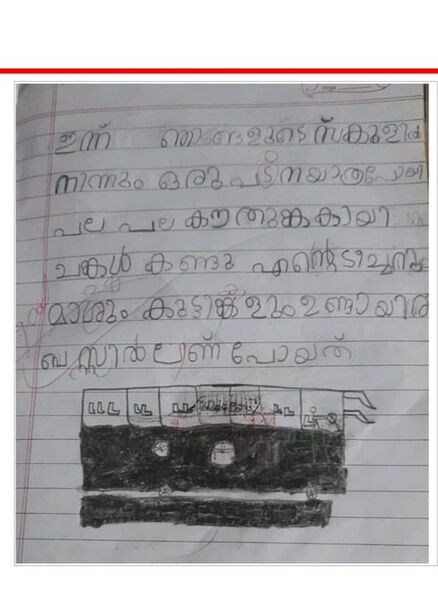 ഇന്ന് ഞങ്ങളുടെ സ്കൂളിൽ
നിന്നും ഒരു പഠനയാത്ര പോയി
പല പല കൗതുങ്കകായി
ചകൾ കണ്ടു എൻ്റെ ടീച്ചറും
മാശും കുട്ടിങ്കളും ഉണ്ടായിര
ബസ്സിൽ ലണ് പോയത്